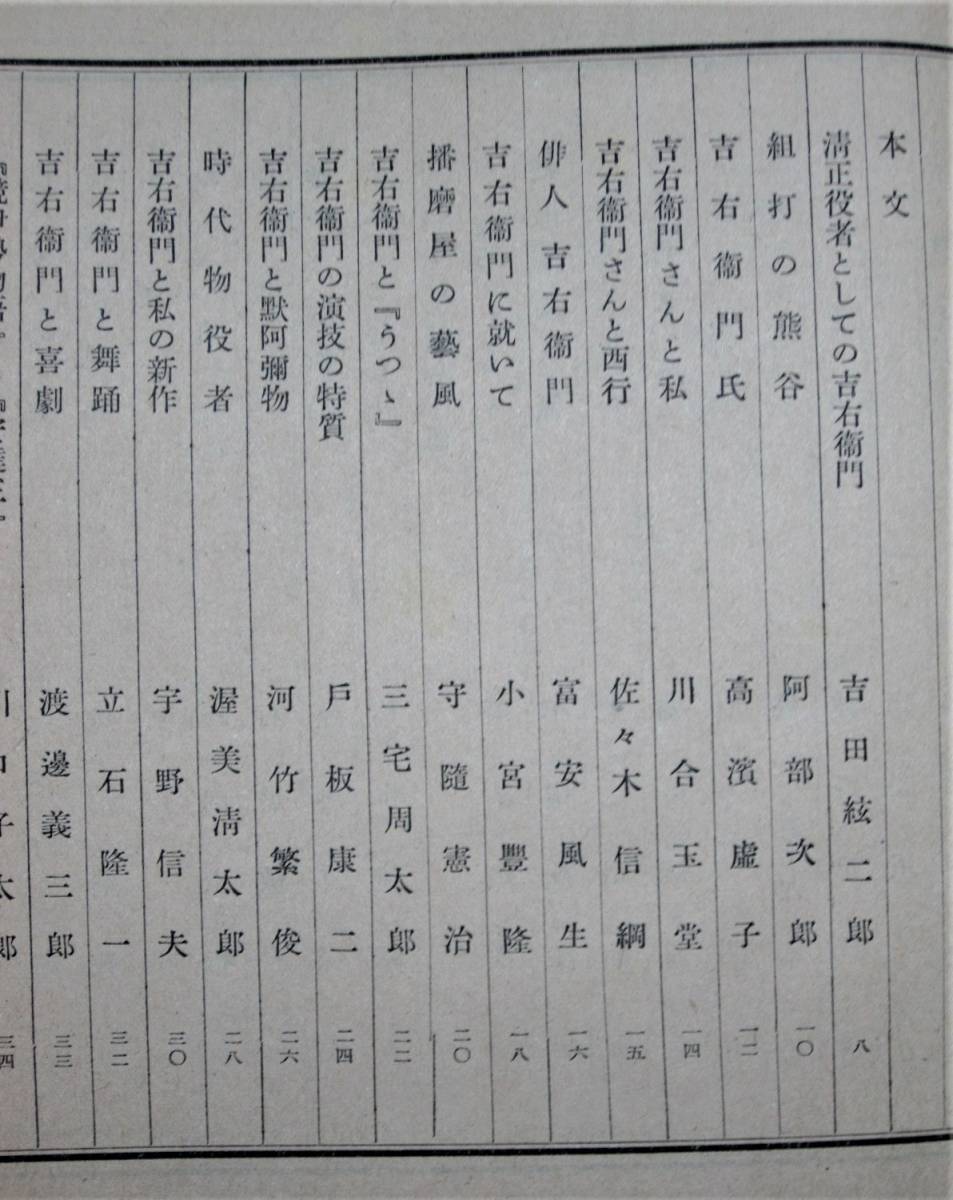 本文
淸正役者としての吉右衞門 吉田絃二郎 八
組打の熊谷 阿部次郎 一〇
吉右衞門氏 高濱虛子 一二
吉右衞門さんと私 川合玉堂 一四
吉右衞門さんと西行 佐々木信綱 一五
俳人吉右衞門 富安風生 一六
吉右衞門に就いて 小宮豐隆 一八
播磨屋の藝風 守隨憲治 二〇
吉右衞門と『うつゝ』 三宅周太郎 二二
吉右衞門の演技の特質 戶板康二 二四
吉右衞門と默阿彌物 河竹繁俊 二六
時代物役者 渥美淸太郎 二八
吉右衞門と私の新作 宇野信夫 三〇
吉右衞門と舞踊 立石隆一 三二
吉右衞門と喜劇 渡邊義三郎 三三
川口子太郎 三四